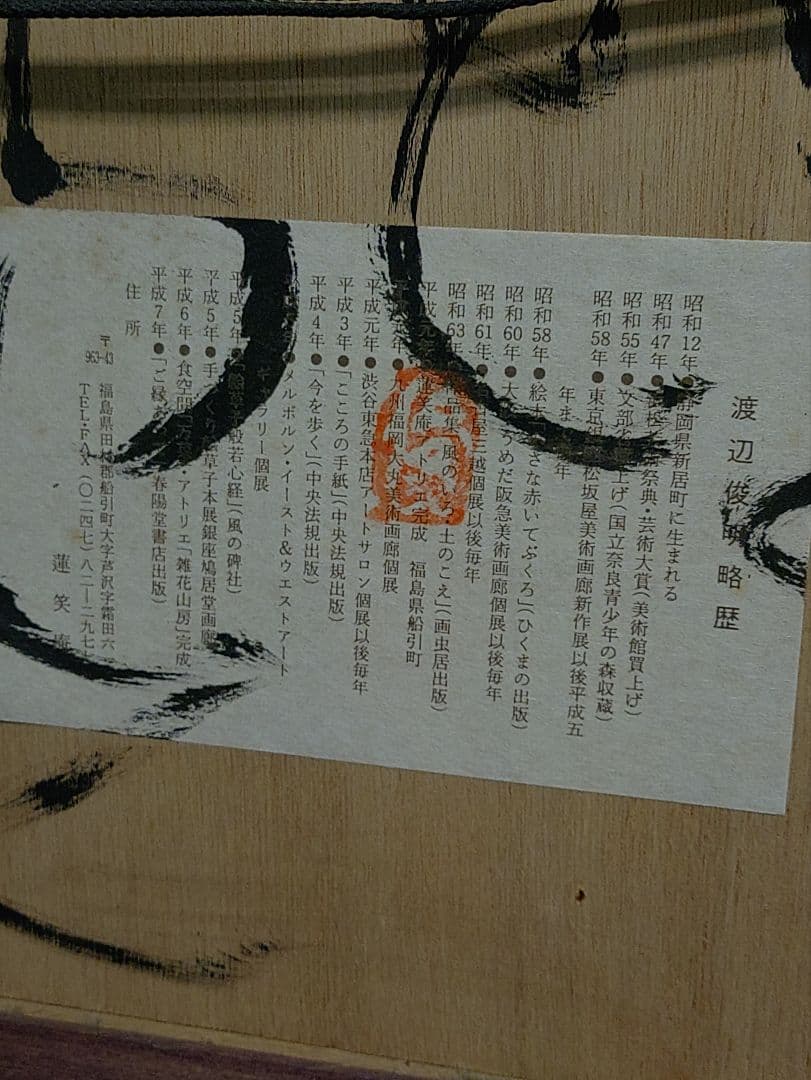 渡辺俊明略歴
昭和12年●静岡県新居町に生まれる
昭和47年 祭典・芸術大賞(美術館買上げ)
昭和55年●文部 買上げ(国立奈良青少年の森収蔵)
昭和58年●東京 松坂屋美術画廊新作展以後平成五
年ま 年
昭和58年●絵本 さな赤いてぶくろ」(ひくまの出版)
昭和60年●大 うめだ阪急美術画廊個展以後毎年
昭和61年● 三越個展以後毎年
昭和63年 品集「風の 土のこえ」(画虫居出版)
平成元年 蓮笑庵 トリエ完成 福島県船引町
年●九州福岡大丸美術画廊個展
平成元年●渋谷東急本店アートサロン個展以後毎年
平成3年●「こころの手紙」(中央法規出版)
平成4年●「今を歩く」(中央法規出版)
●メルボルン・イースト&ウエストアート
ギャラリー個展
平成5年●「 般若心経」(風の碑社)
平成5年●手づくり 草子本展銀座鳩居堂画廊
平成6年●食空間 ・アトリエ「雑花山房」完成
平成7年●「ご縁 春陽堂書店出版)
住所
〒963-43 福島県田村郡船引町大字芦沢字霜田六
TEL・FAX(〇二四七)八二―二九七
蓮笑庵